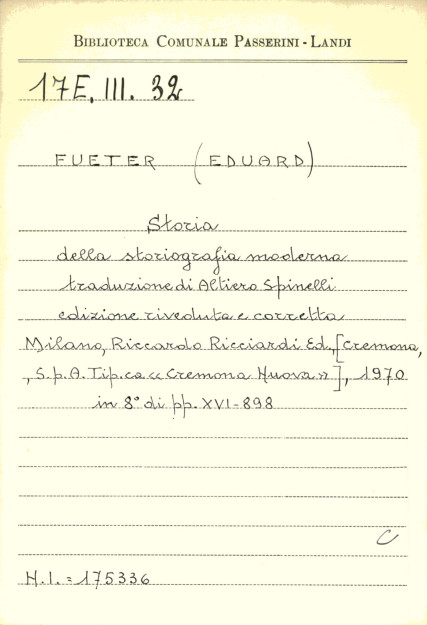 BIBLIOTECA COMUNALE PASSERINI - LANDI
17E. III. 32
FUETER (EDUARD)
Storia
della storiografia moderna
traduzione di Altiero Spinelli
edizione riveduta e corretta
Milano, Riccardo Ricciardi Ed., [Cremona,
, S.p.A. Tip.ca « Cremona Nuova »], 1970
in 8° di pp. XVI-898
C
N.I. = 175336